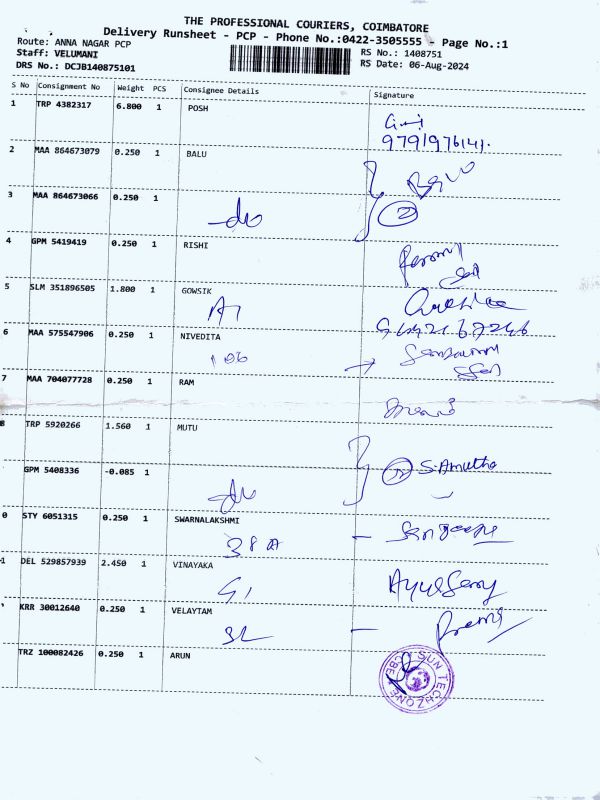 THE PROFESSIONAL COURIERS, COIMBATORE
Delivery Runsheet - PCP - Phone No.:0422-3505555 - Page No.:1
Route: ANNA NAGAR PCP RS No.: 1408751
Staff: VELUMANI RS Date: 06-Aug-2024
DRS No.: DCJB140875101
S No Consignment No Weight PCS Consignee Details Signature
1 TRP 4382317 6.800 1 POSH
9791976141.
2 MAA 864673079 0.250 1 BALU
3 MAA 864673066 0.250 1
-do 2
4 GPM 5419419 0.250 1 RISHI
5 SLM 351896505 1.800 1 GOWSIK
A1
6 MAA 575547906 0.250 1 NIVEDITA
106
7 MAA 704077728 0.250 1 RAM
8 TRP 5920266 1.560 1 MUTU
S. Amutha
GPM 5408336 -0.085 1
-do
0 STY 6051315 0.250 1 SWARNALAKSHMI
38 A
1 DEL 529857939 2.450 1 VINAYAKA
KRR 30012640 0.250 1 VELAYTAM
TRZ 100082426 0.250 1 ARUN
SUN TECHZONE CBE